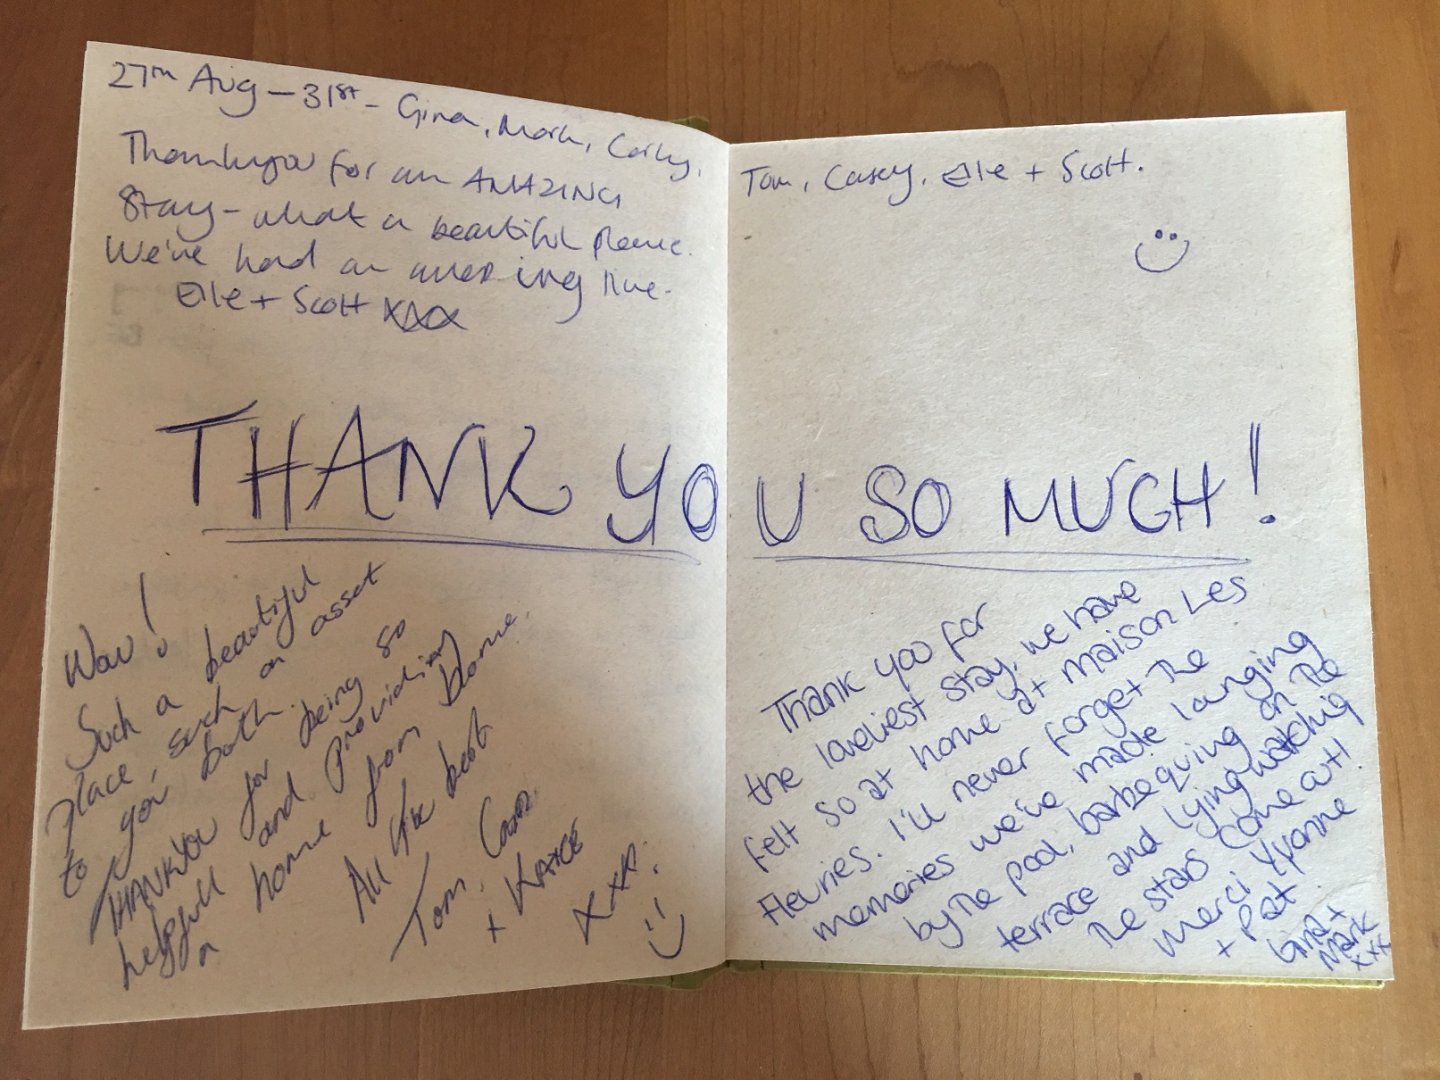 27th Aug – 31st – Gina, Mark, Carly,
Tom, Casey, Elle + Scott.
Thankyou for an AMAZING
Stay – what a beautiful place.
We've had an amazing time.
Elle + Scott xxx
THANK YOU SO MUCH!
Wow!
Such a beautiful
place, such an asset
to you both.
THANKYOU for being so
helpfull and providing
a home from home.
All the best
Tom,
+ KATCE
xxx :)
Thank you for
the loveliest stay, we have
felt so at home at maison Les
Fleuries. I'll never forget the
memories we've made lounging
by the pool, barbequing on the
terrace and lying watching
the stars come out!
merci Yvonne
+ Pat
Gina +
Mark
xxx